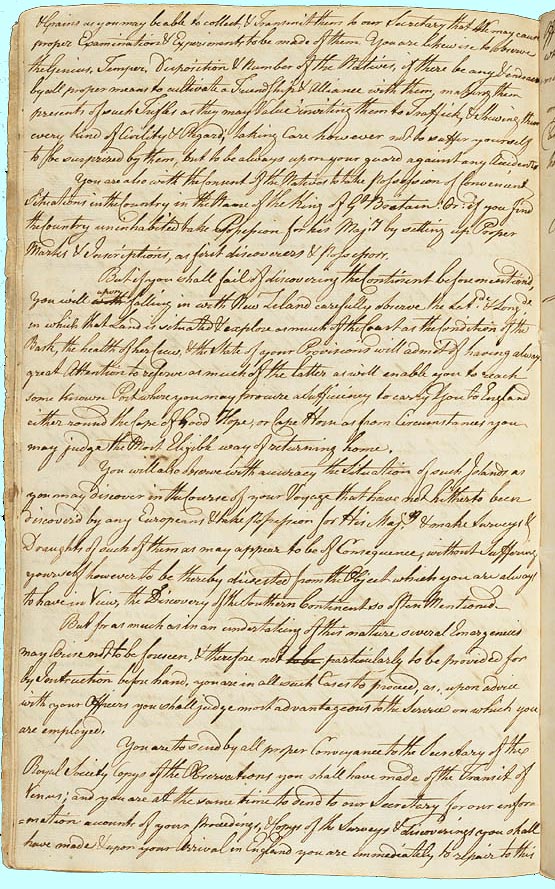 & Grains as you may be able to collect, & Transmit them to our Secretary that We may cause
proper Examination & Experiments to be made of them. You are likewise to observe
the Genius, Temper, Disposition & Number of the Natives, if there be any & endeavour
by all proper means to cultivate a Friendship & Aliance with them, making them
presents of such Trifles as they may Value inviting them to Traffick, & Shewing them
every kind of Civility & Regard; taking Care however not to suffer yourself
to be surprized by them, but to be always upon your guard against any Accidents.
You are also with the Consent of the Natives to take Possession of Convenient
Situations in the Country in the Name of the King of Gt. Britain: Or: if you find
the Country uninhabited take Possession for his Majty by setting up Proper
Marks & Inscriptions, as first discoverers & Possessors.
But if you shall fail of discovering the Continent beforemention'd
You will upon falling in with New Zeland carefully observe the Latde. & Longde
in which that Land is situated & explore as much of the Coast as the Condition of the
Bark, the health of her Crew, & the State of your Provisions will admit of having always
great Attention to reserve as much of the latter as will enable you to reach
some known Port where you may procure a Sufficiency to carry You to England
either round the Cape of Good Hope, or Cape Horn as from Circumstances you
may judge the Most Eligible way of returning home.
You will also observe with accuracy the Situation of such Islands as
you may discover in the Course of your Voyage that have not hitherto been
discover'd by any Europeans & take Possession for His Majty & make Surveys &
Draughts of such of them as may appear to be of Consequence, without Suffering
yourself however to be thereby diverted from the Object which you are always
to have in View, the Discovery of the Southern Continent so often Mentioned.
But for as much as in an undertaking of this nature several Emergencies
may Arise not to be foreseen, & therefore not to be particularly to be provided for
by Instruction before hand, you are in all such Cases to proceed, as, upon advice
with your Officers you shall judge most advantageous to the Service on which you
are employed.
You are to send by all proper Conveyance to the Secretary of the
Royal Society Copys of the Observations you shall have made of the Transit of
Venus; and you are at the same time to send to our Secretary for our infor=
=mation accounts of your Proceedings, & Copys of the Surveys & discoverings you shall
have made & upon your Arrival in England you are immediately to repair to this